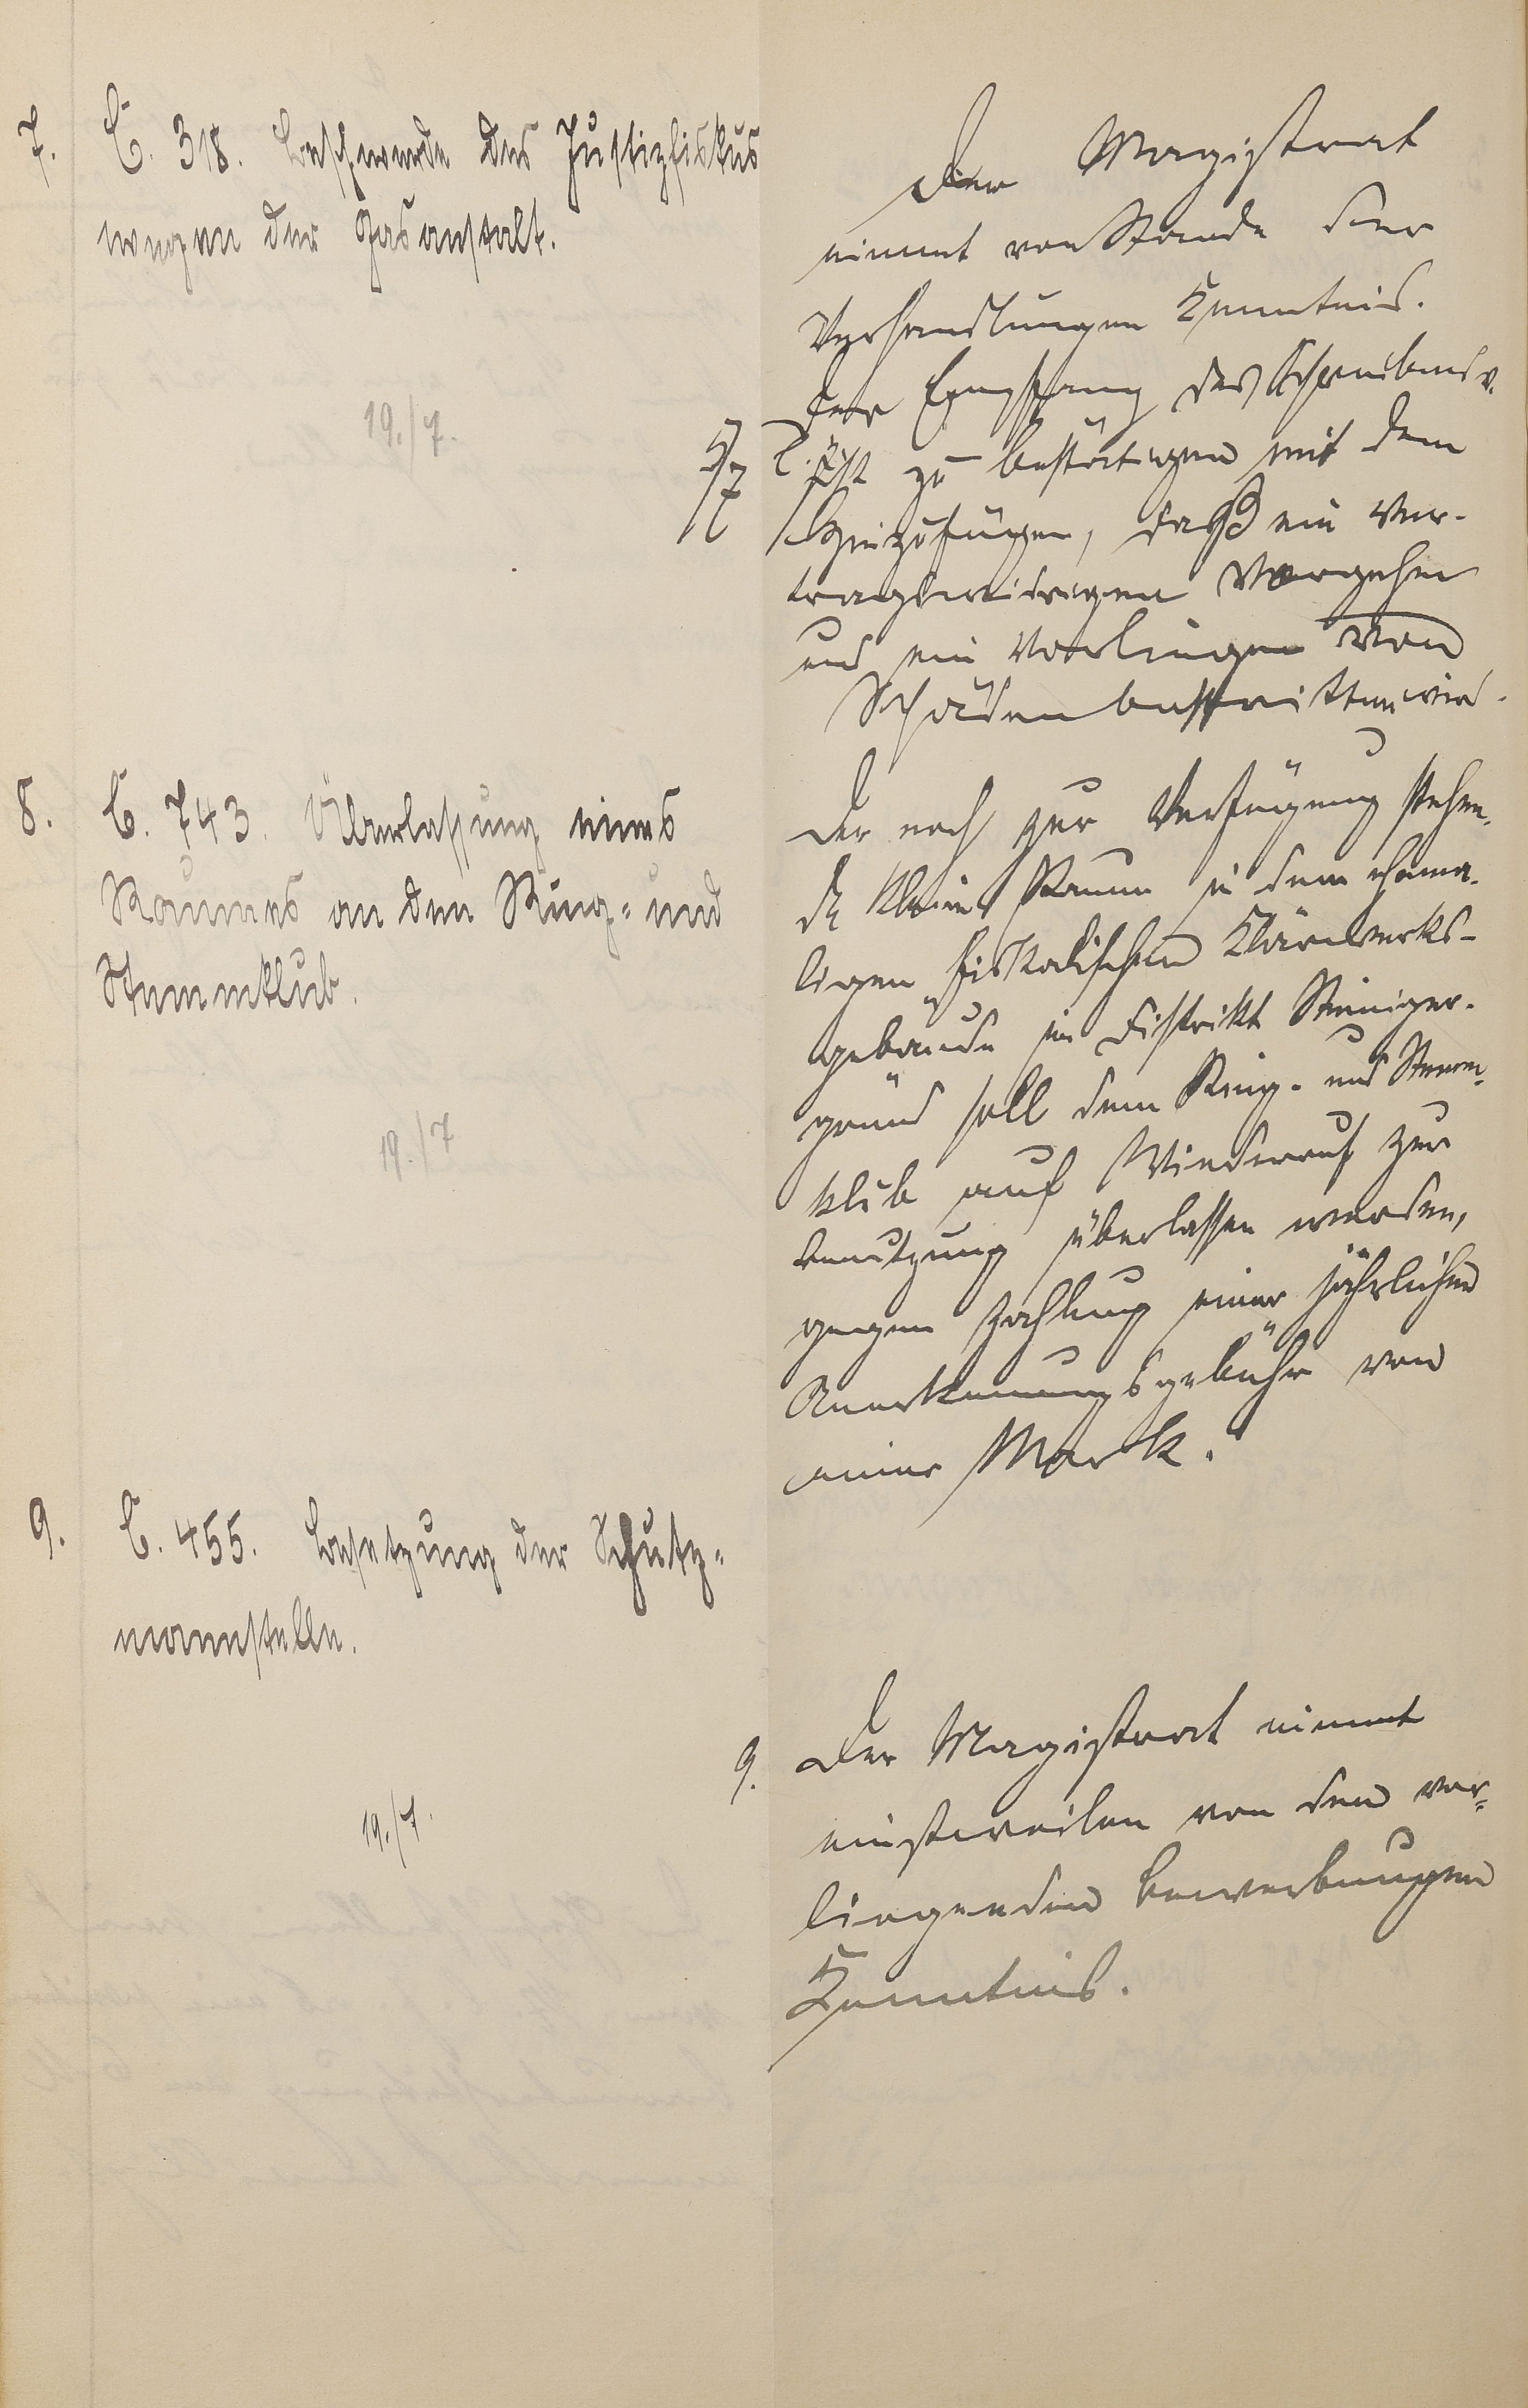 7. C. 318. Beschwerde des Justizfiskus
wegen der Gasanstalt.
19./7.
Der Magistrat
nimmt vom Stande der
Verhandlungen Kenntnis.
Der Empfang des Schreibens v.
5/7 ist zu bestätigen mit dem
Hinzufügen, daß ein ver-
tragswidriges Vorgehen
und ein Vorliegen von
Schäden bestritten wird.
8. C. 743. Überlassung eines
Raumes an den Ring- und
Stemmklub.
19./7
Der noch zur Verfügung stehen-
de kleine Raum in dem ehema-
ligen fiskalischen Klärwerks-
gebäude im Distrikt
grund soll dem Ring- und Stemm-
klub auf Widerruf zur
Benutzung überlassen werden,
gegen Zahlung einer jährlichen
Anerkennungsgebühr von
einer Mark.
9. C. 455. Besetzung der Schutz-
mannstelle.
19./7.
9. Der Magistrat nimmt
einstweilen von den vor-
liegenden Bewerbungen
Kenntnis.